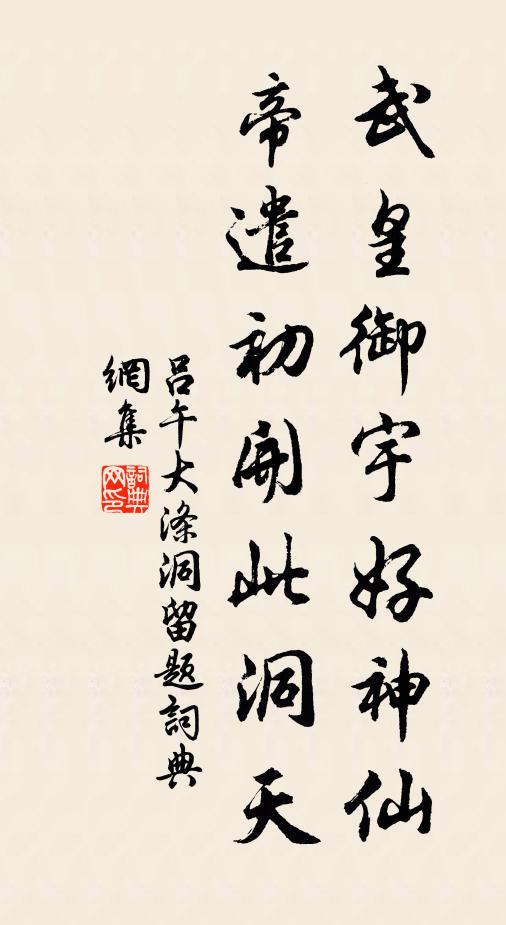 武皇御宇好神仙
帝遣初開此洞天
呂午大滌洞留題詞典
網集
詞典網印